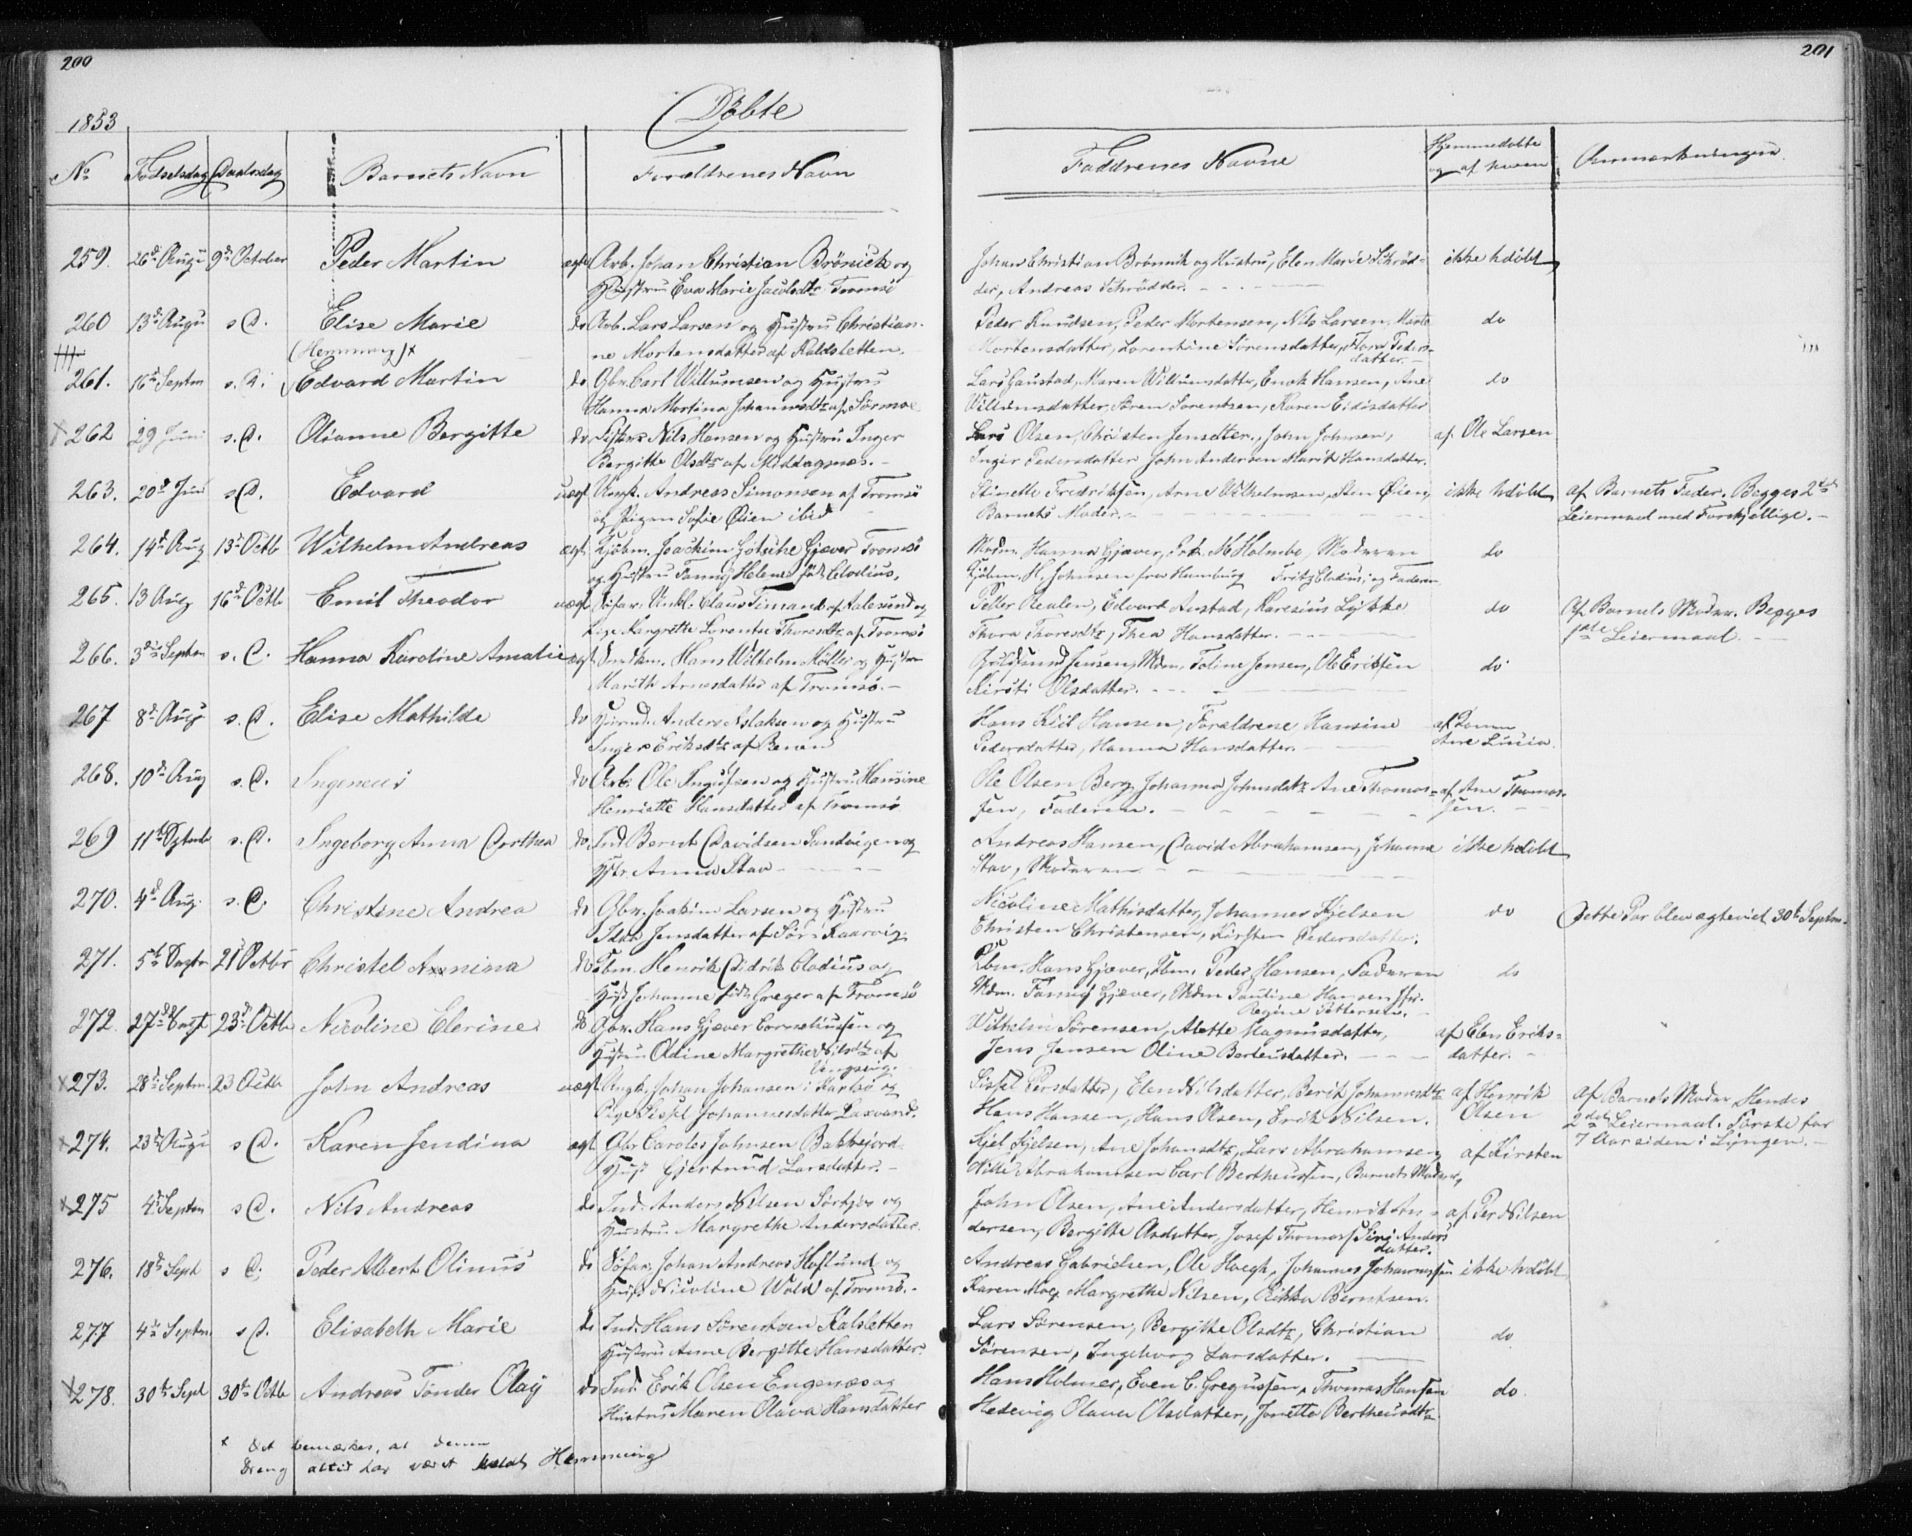 200
201
1853
Döbte
No Födselsdag Daabsdag Barnets Navn Forældrenes Navn Faddrenes Navne Hjemmedøbte og af hvem Anmærkninger
259. 26de Augu 9de October Peder Martin ægte Arb. Johan Christian Brönick og
Hustru Eva Marie Jacobsdtr Tromsö
Johan Christian Brönnik og Hustru, Elen Marie Schröd-
der, Andreas Schrödder. ikke hdöbt
260 13de Augu s.D. Elise Marie do Arb. Lars Larsen og Hustru Christian-
ne Mortensdatter af Kaldsletten.
Peder Knudsen, Peder Mortensen, Nils Larsen, Marte
Mortensdatter, Lorentine Sörensdatter, Flora Peders-
datter. do
(Hemming)x
261. 16de Septm s.D. Edvard Martin do Gbr. Carl Willumsen og Hustru
Hanna Martina Johannesdtr af Sörmoe
Lars Gaustad, Maren Willumsdatter, Enok Hansen, Ane
Willumsdatter, Sören Sorentsen, Karen Eidisdatter do
x 262 29 Juni s.D. Olianne Bergitte do Nils Hansen og Hustru Inger
Bergitte Olsdtr af Middagsnæs.
Lars Olsen, Christen Jensdtter, John Johnsen,
Inger Pedersdatter John Andersen Marit Hansdatter. af Ole Larsen
263. 20de Juni s.D. Edvard uægt Ungk. Andreas Simonsen af Tromsö
og Pigen Sofie Öien ibid
Stinette Fredriksen, Arne Vilhelmsen, Sten Öien,
Barnets Moder. ikke hdöbt af Barnets Fader. Begges 2det
Leiermaal med Forskjellige.
264. 14de Aug 13de Octb Wilhelm Andreas ægt. Kjöbm. Joachim Götsche Gjæver Tromsö
og Hustru Fanny Helene föd Clodius,
Madm. Hanna Gjæver, Prk. M Holmbo, Moderen
Kjöbm. H. Johnsen fra Hamburg Fritz Clodius, og Faderen do
265. 13 Aug 16de Octb Emil Theodor uægt Söfar. Unkl. Claus Timand af Aalesund og
Pige Margrethe Lorentse Thoresdtr af Tromsö
Peder Reulen, Edvard Anstad, Karesius Lykke
Thora Thoresdtr, Thea Hansdatter. do Af Barnets Moder. Begges
1ste Leiermaal.
266. 3die Septm s.D. Hanna Karoline Amalie ægt. Hans Wilhelm Möller og Hustru
Marith Arnesdatter af Tromsö.
Jensen, Mdm. Toline Jensen, Ole Eriksen
Kirsti Olsdatter. do
267 8de Aug s.D. Elise Mathilde do Anders Aslaksen og Hustru
Inger Eriksdtr af
Hans Kiil Hansen, Forældrene Hansine
Pedersdatter, Hanna Hansdatter.
Ane Lucia.
268. 10de Aug s.D. Ingeneus do Arb. Ole Ingulfsen og Hustru Hansine
Henriette Hansdatter af Tromsö
Ole Olsen Berg, Johanna Johnsdtr Ane Thomas-
sen, Faderen. af Ane Thomas-
sen.
269 11te s.D. Ingeborg Anna Dorthea do Ind. Bernt Davidsen Sandvigen og
Hstr. Anna Stav
Andreas Hansen, David Abrahamsen, Johanna
Stav, Moderen ikke hdöbt
270. 4de Aug. s.D. Christine Andrea do Gbr. Joakim Larsen og Hustru
Jensdatter af Söre Kaarvig.
Nicoline Mathisdatter, Johannes Kjelsen
Christen Christensen, Kirsten Pedersdatter. do Dette Par blev ægteviet 30te Septm.
271. 5te Septm 21 Octbr Christel Annina do Kbm. Henrik Didrik Clodius og
Hust Johanne föd Greger af Tromsö
Kbm. Hans Gjæver, Kbm. Peder Hansen, Faderen
Mdm. Fanny Gjæver, Mdm Pauline Hansen, Jfr.
Regine Pettersen. do
272. 27de 23de Octb Nicoline Elerine do Gbr. Hans Gjæver Corneliussen og
Hustru Oldine Margrethe Nilsdtr af
Wilhelm Sörensen, Alette Magnusdatter,
Jens Jensen Oline Berteusdatter. af Elen Eriks-
datter.
x273. 28de Septm 23 Octb John Andreas uægt Ungk. Johan Johansen i Karlsö og
Pige Sissel Johannesdatter Laxvand.
Sissel Persdatter, Elen Nilsdatter, Berit Johannesdtr
Hans Hansen, Hans Olsen, Erik Nilsen. af Henrik
Olsen af Barnets Moder Hendes
2det Leiermaal. Förste for
7 Aar siden i Lyngen.
x274. 23de Augu s.D. Karen Jendina ægt Gbr Carolus Johnsen Bakkejord
Hust Gjertrud Larsdatter.
Kjel Kjelsen, Ane Johansdtr, Lars Abrahamsen,
Nille Abrahamsen Carl Bertheussen, Barnets Moder, af Kirsten
x275 4de Septm s.D. Nils Andreas do Ind. Anders Nilsen Sörkjos og
Hustru Margrethe Andersdatter.
John Olsen, Ane Andersdatter, Henrik An-
dersen, Bergitte Olsdatter, Josef Thomass Siri Anders
datter. af Per Nilsen
276. 18de Sept s D. Peder Albert Olinus do Söfar. Johan Andreas Hoflund og
Hust Nicoline Wold af Tromsö.
Andreas Gabrielsen, Ole Hoegh, Johannes Johannessen
Karen Moe, Margrethe Nilsen, Rikka Berntsen. ikke hdöbt
277 4de Septm. s D. Elisabeth Marie do Ind. Hans Sörentsen Kalsletten
Hustru Anne Bergitte Hansdatter.
Lars Sörensen, Bergitte Olsdtr, Christian
Sörensen, Ingeborg Larsdatter. do
x278. 30te Sept 30te Octb Andreas Tönder Olaÿ do Ind. Erik Olsen Engenæs og
Hustru Maren Olava Hansdatter
Hans Holmer, Even C. Gregussen, Thomas Hansen
Hedevig Olava Olsdatter, Jonette Bertheusdtr. do
x Det bemærkes, at denne
Dreng altid har været kaldt Hemming